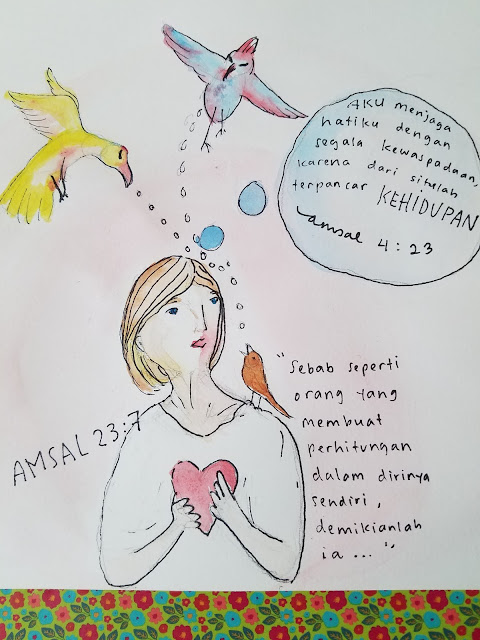 AKU menjaga
hatiku dengan
segala kewaspadaan,
karena dari situlah
terpancar KEHIDUPAN
amsal 4 : 23
AMSAL 23:7
"Sebab seperti
orang yang
membuat
perhitungan
dalam dirinya
sendiri,
demikianlah
ia ... "